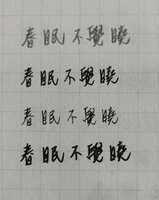 春眠不覺曉
春眠不覺曉
春眠不覺曉
春眠不覺曉